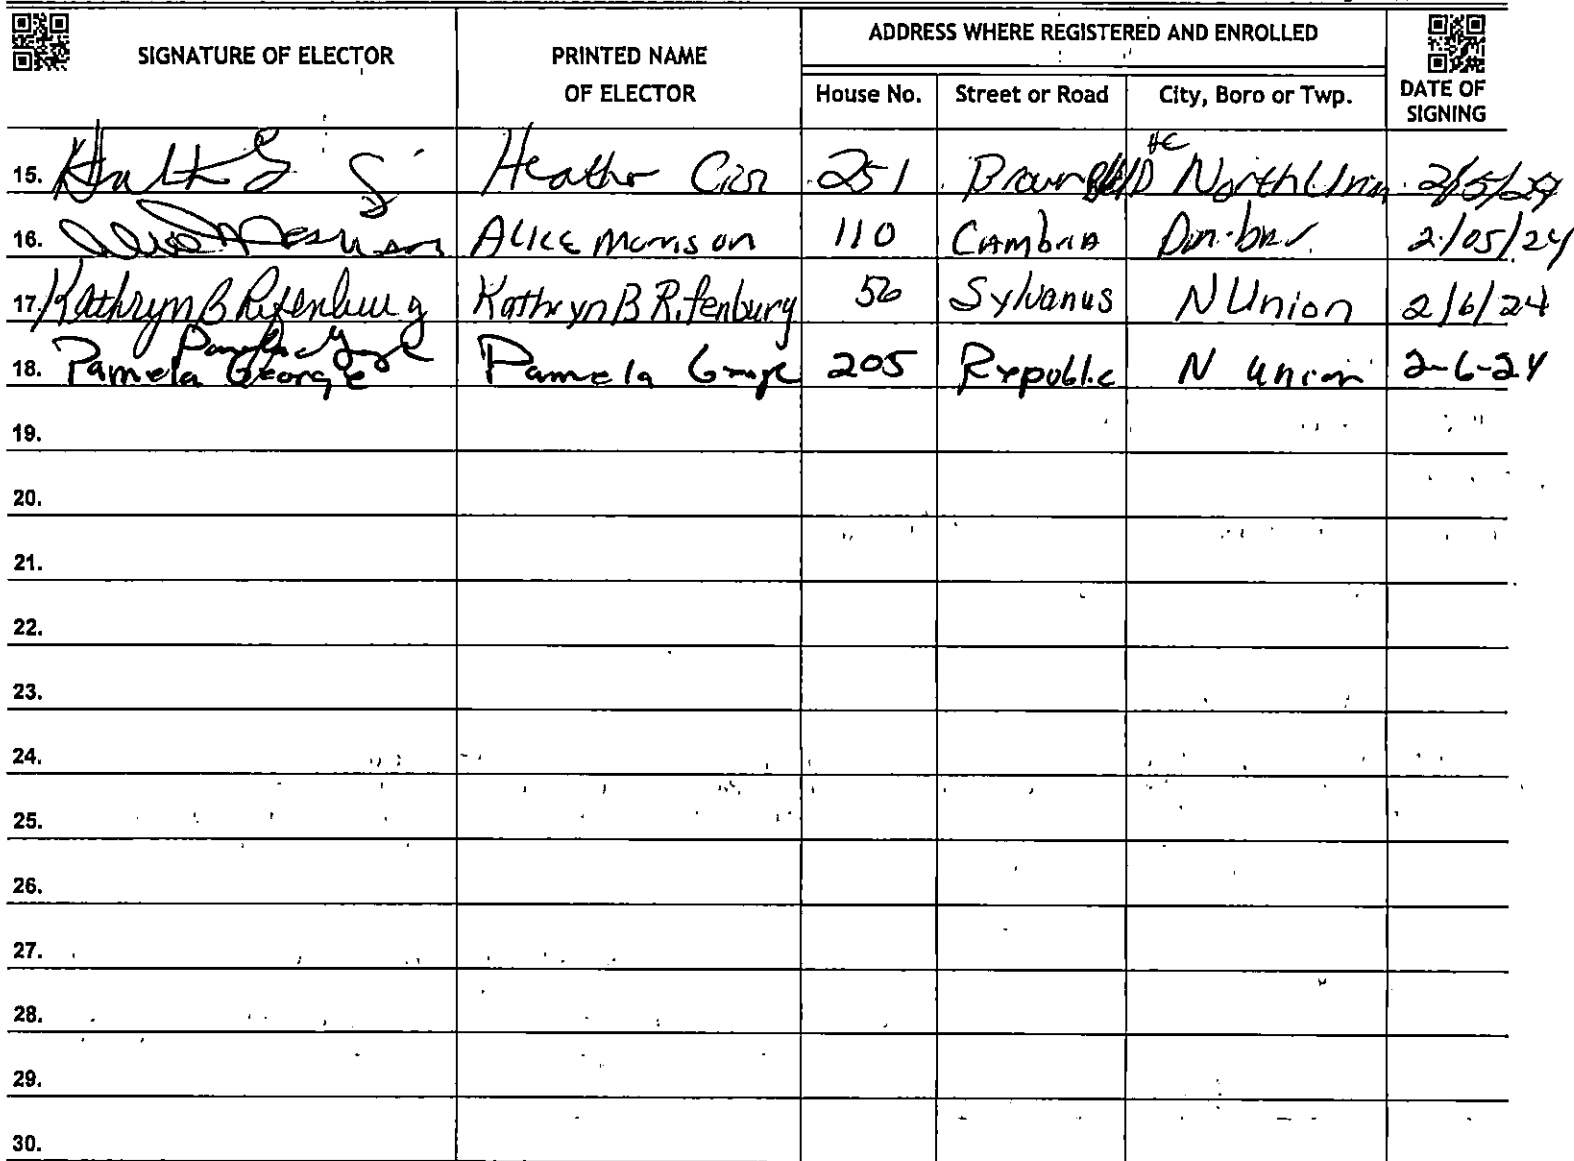 SIGNATURE OF ELECTOR PRINTED NAME OF ELECTOR ADDRESS WHERE REGISTERED AND ENROLLED DATE OF SIGNING
House No. Street or Road City, Boro or Twp.
15. Heather 251 North Union
16. ALICE Morrison 110 CAMbriA 2/05/24
17. Kathryn B Rifenburg Kathryn B Rifenburg 56 Sylvanus N Union 2/6/24
18. Pamela George Pamela George Pamela George 205 Republic N Union 2-6-24
19.
20.
21.
22.
23.
24.
25.
26.
27.
28.
29.
30.